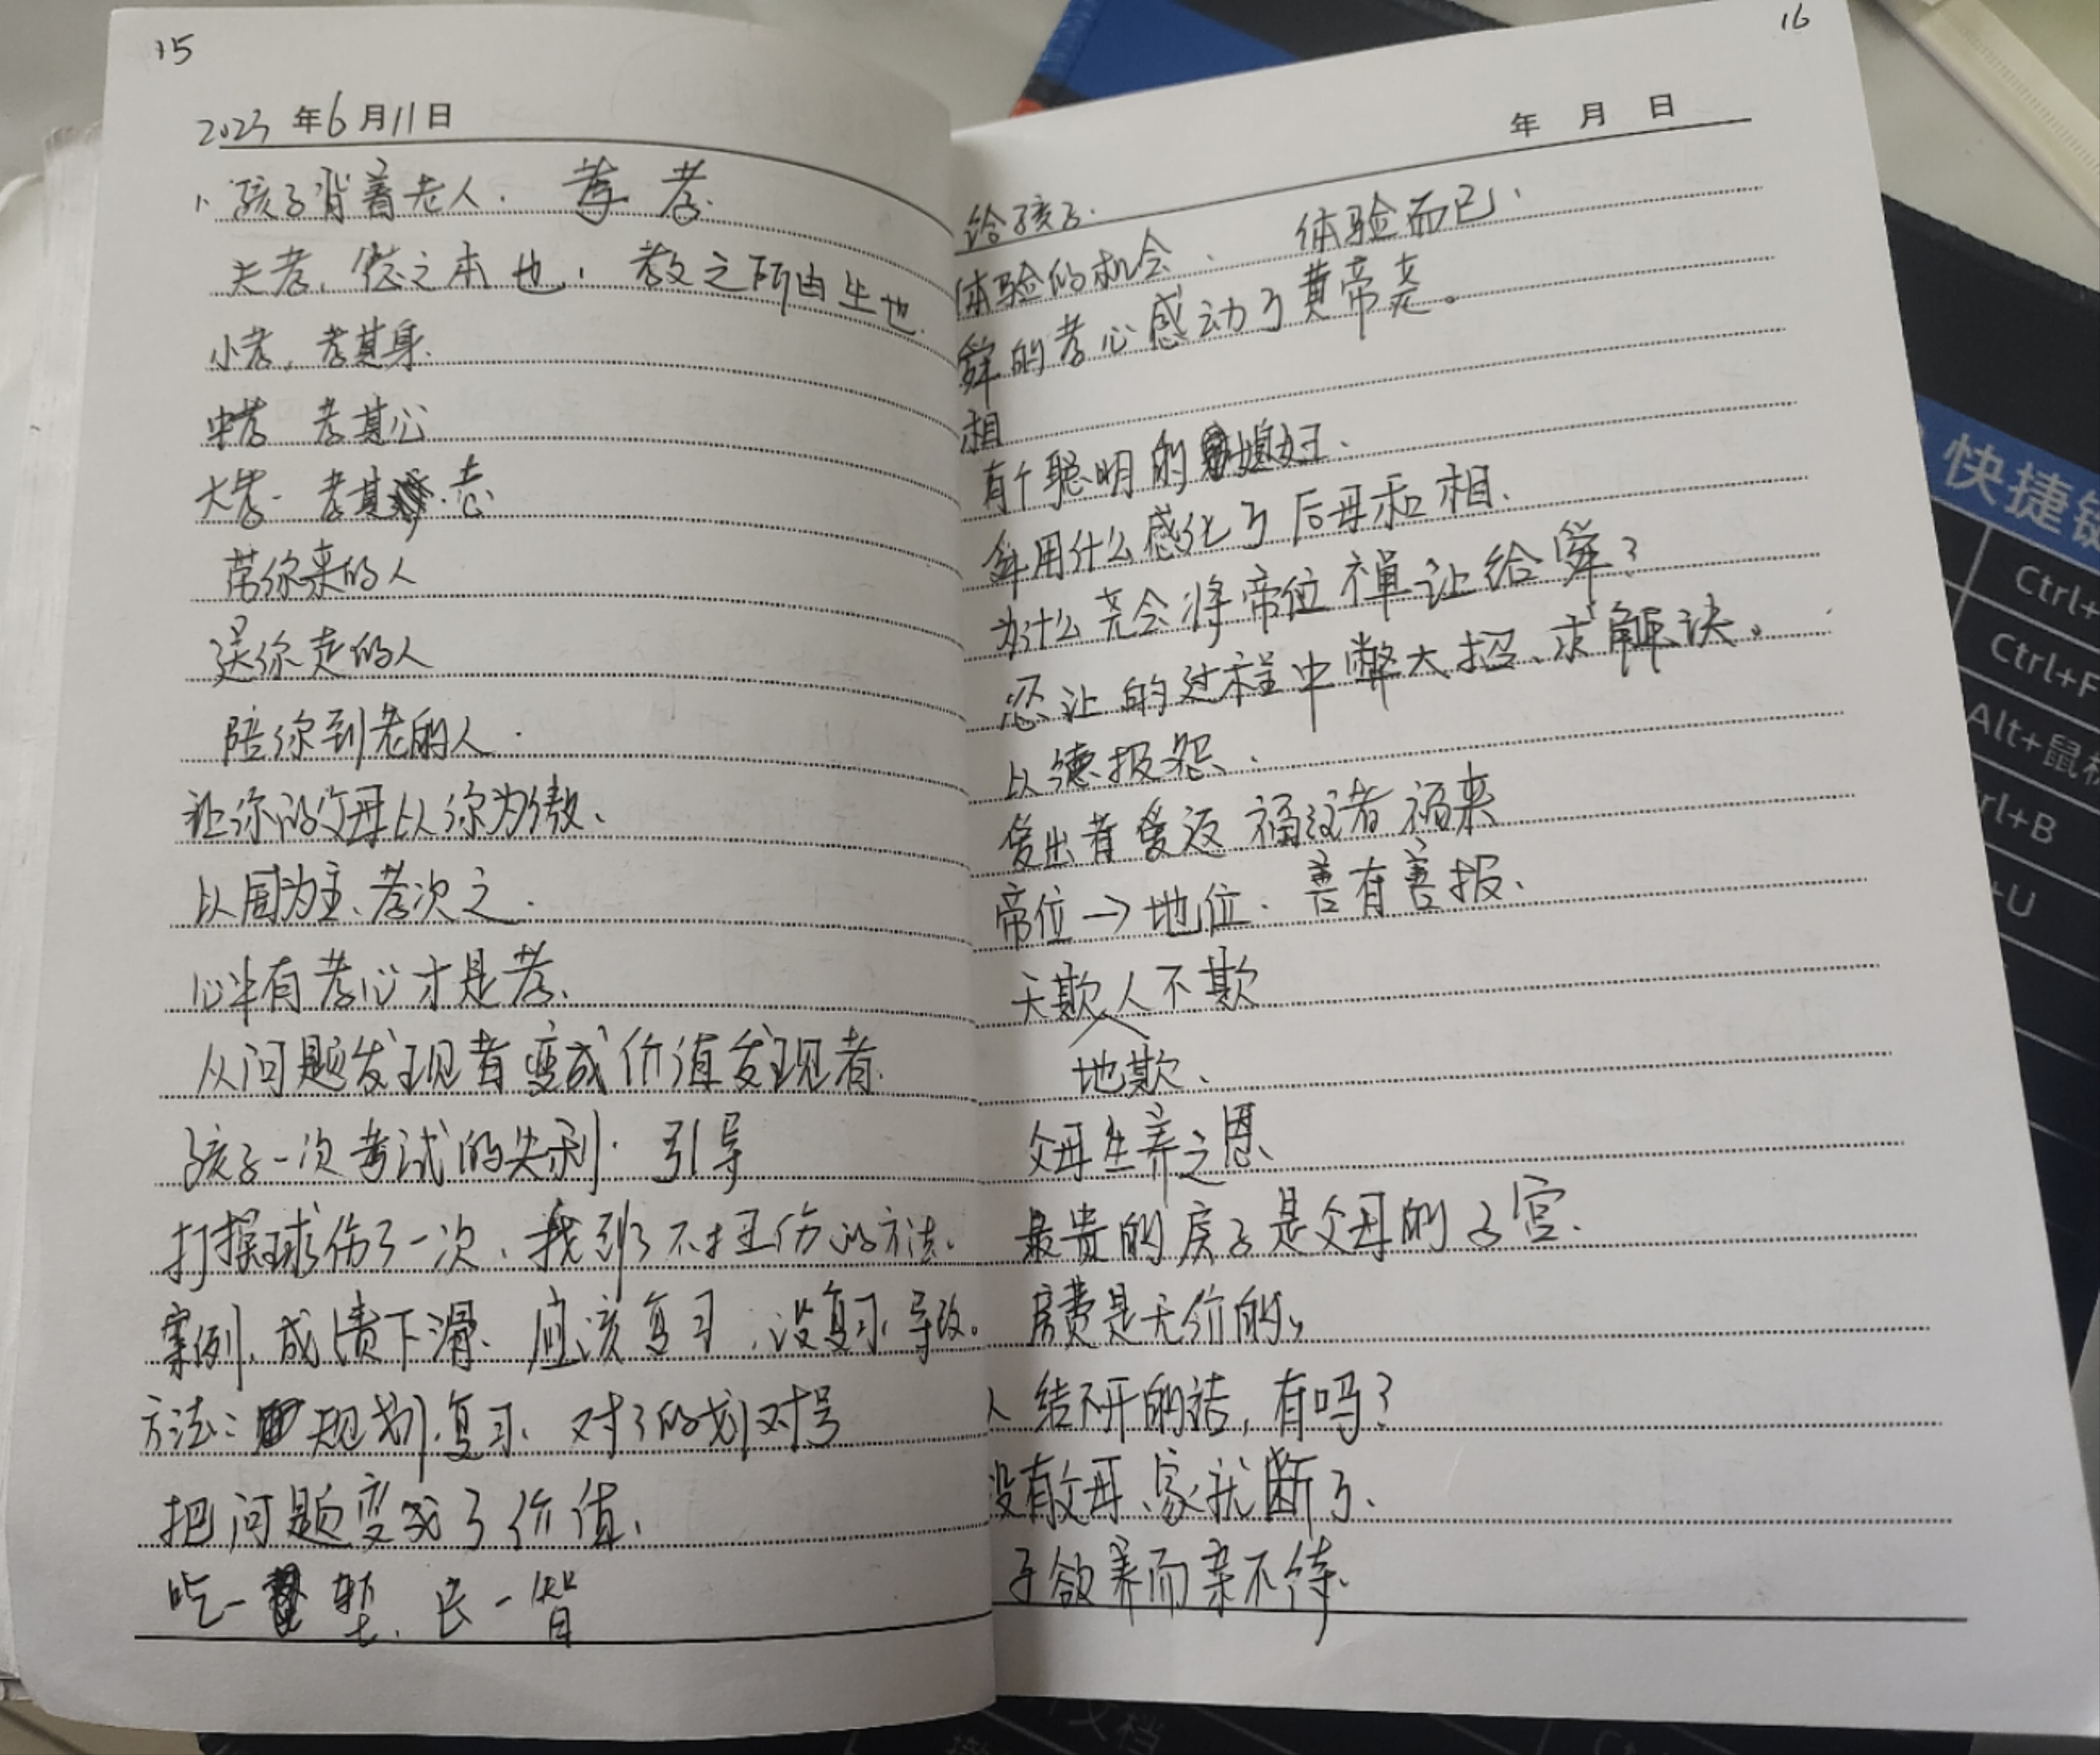 15
2023年6月11日
1、孩子背着老人. 孝 孝.
夫孝,德之本也,教之所由生也.
小孝,孝其身.
中孝 孝其心
大孝. 孝其志
带你来的人
送你走的人
陪你到老的人.
让你的父母以你为傲、
以国为主、孝次之.
心中有孝心才是孝、
从问题发现者变成价值发现者.
孩子一次考试的失利. 引导
打球伤了一次、找到了不打伤的方法.
案例、成绩下滑、应该复习,没复习、导致。
方法:规划复习、对了的划对号
把问题变成了价值、
吃一堑、长一智
16
年 月 日
给孩子.
体验的机会、 体验而已、
舜的孝心感动了黄帝尧。
相
有个聪明的媳妇、
舜用什么感化了后母和相.
为什么尧会将帝位禅让给舜?
忍让的过程中憋大招、求解决。
以德报怨、
爱出者爱返 福往者福来
帝位→地位. 善有善报、
天欺人不欺
地欺、
父母生养之恩、
最贵的房子是父母的子宫.
房费是无价的,
人结不开的结,有吗?
没有父母、家就断了、
子欲养而亲不待、
快捷键
Ctrl+
Ctrl+F
Alt+鼠标
rl+B
+U
文档